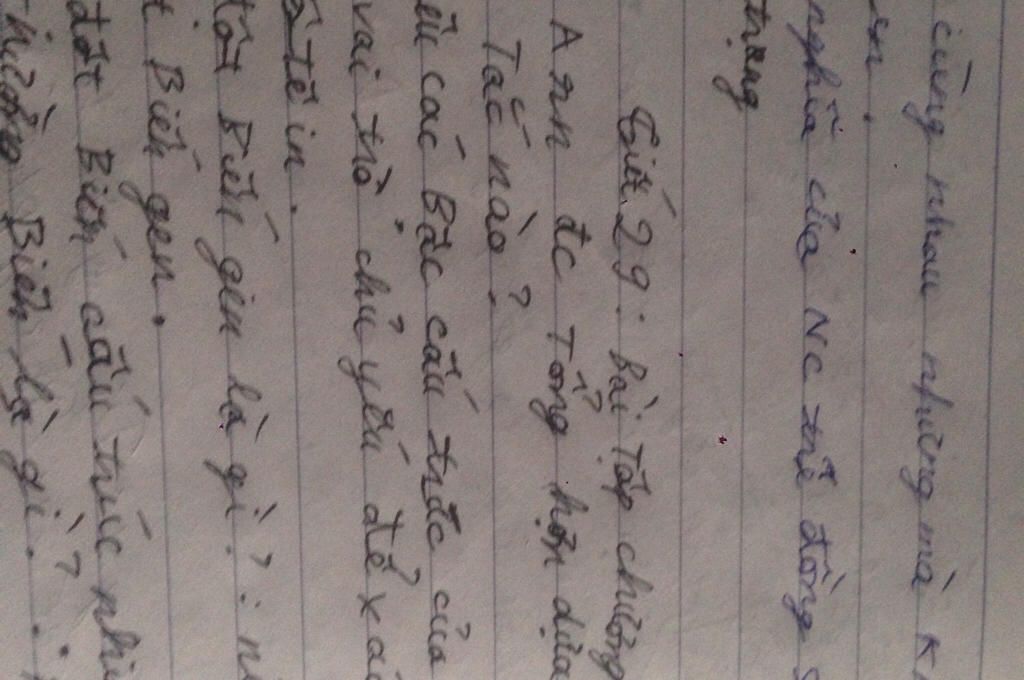 cùng nhau nhưng mà K
nghĩa của NC trẻ đồng s
trạng
Tiết 29: bài Tập chương
ARN đc Tổng hợp dựa
Tắc nào?
các Bậc cấu trúc của
vai trò chủ yếu để xá
tein.
Biến gen là gì? : n
Biến gen.
đột Biến cấu trúc nhi
Biến là gì?